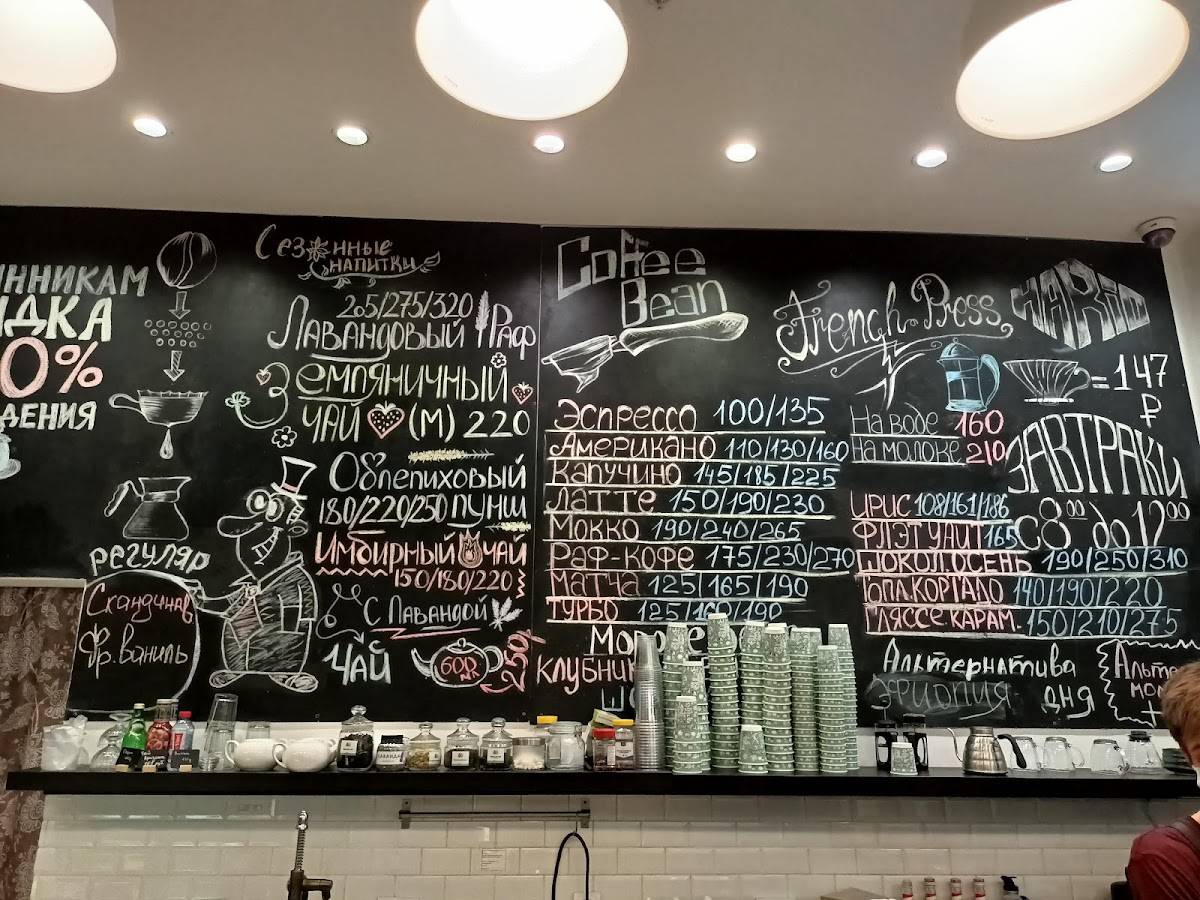 ННИКАМ
ДКА
0%
ДЕНИЯ
регуляр
Скандинав
Фр.ваниль
Сезонные
напитки
265/275/320
Лавандовый Раф
Земляничный
чай (М) 220
Облепиховый
180/220/250 пунш
Имбирный чай
150/180/220
с Лавандой
Чай 600 мл 250р
Coffee
Bean
Эспрессо 100/135
Американо 110/130/160
Капучино 145/185/225
Латте 150/190/230
Мокко 190/240/265
Раф-кофе 175/230/270
Матча 125/165/190
Турбо 125/160/190
клубни
French Press
На воде 160
На молоке 210
HARIO
=147
₽
Завтраки
с 8⁰⁰ до 12⁰⁰
Ирис 108/161/186
Флэт уайт 165
Шокол.осень 190/250/310
Апл.кортадо 140/190/220
Гляссе карам. 150/210/275
Альтернатива
Эфиопия дня
Альте
мол
+